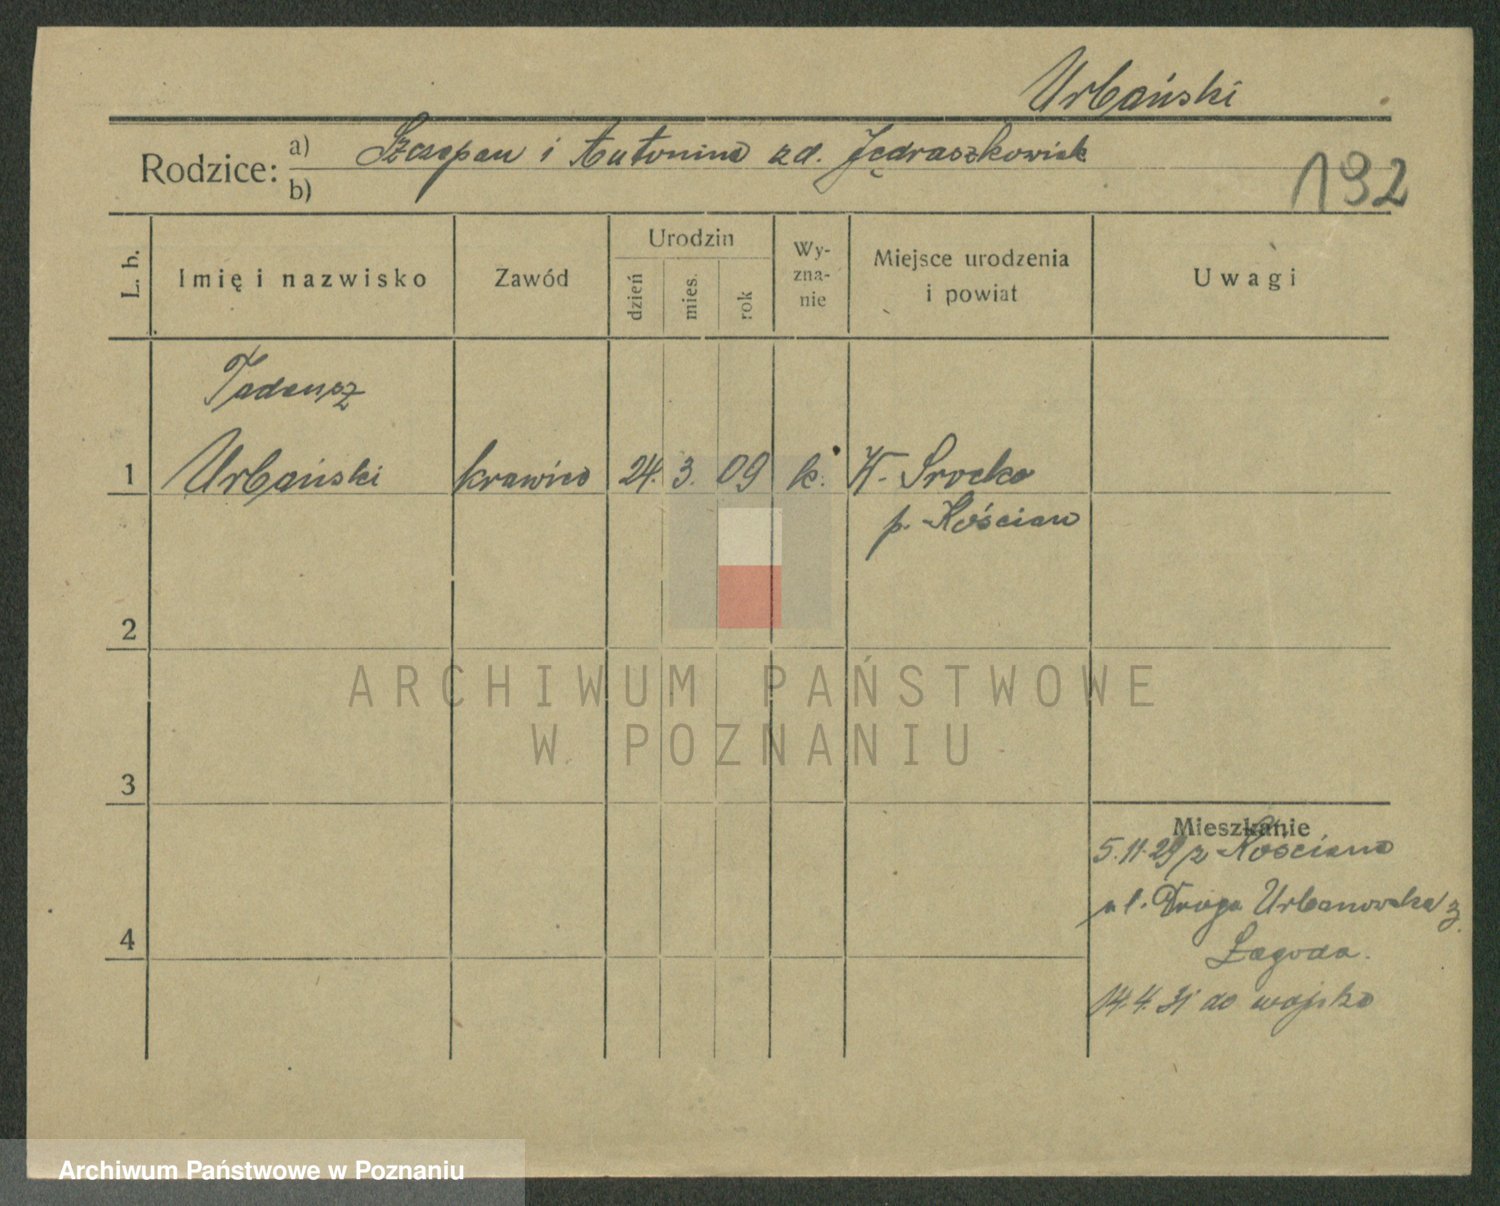 Urbański
Rodzice: a) Szczepan i Antonina zd. Jędraszkowiak
b)
192
L. b.
Imię i nazwisko
Zawód
Urodzin
dzień
mies.
rok
Wy-
zna-
nie
Miejsce urodzenia
i powiat
Uwagi
Tadeusz
1 Urbański krawiec 24. 3. 09 k. W. Srocko
p. Kościan
2
ARCHIWUM PAŃSTWOWE
W POZNANIU
3
Mieszkanie
5.11.29 z Kościana
4
ul. Droga Urbanowska 3.
Łagoda.
14.4.31 do wojska
Archiwum Państwowe w Poznaniu